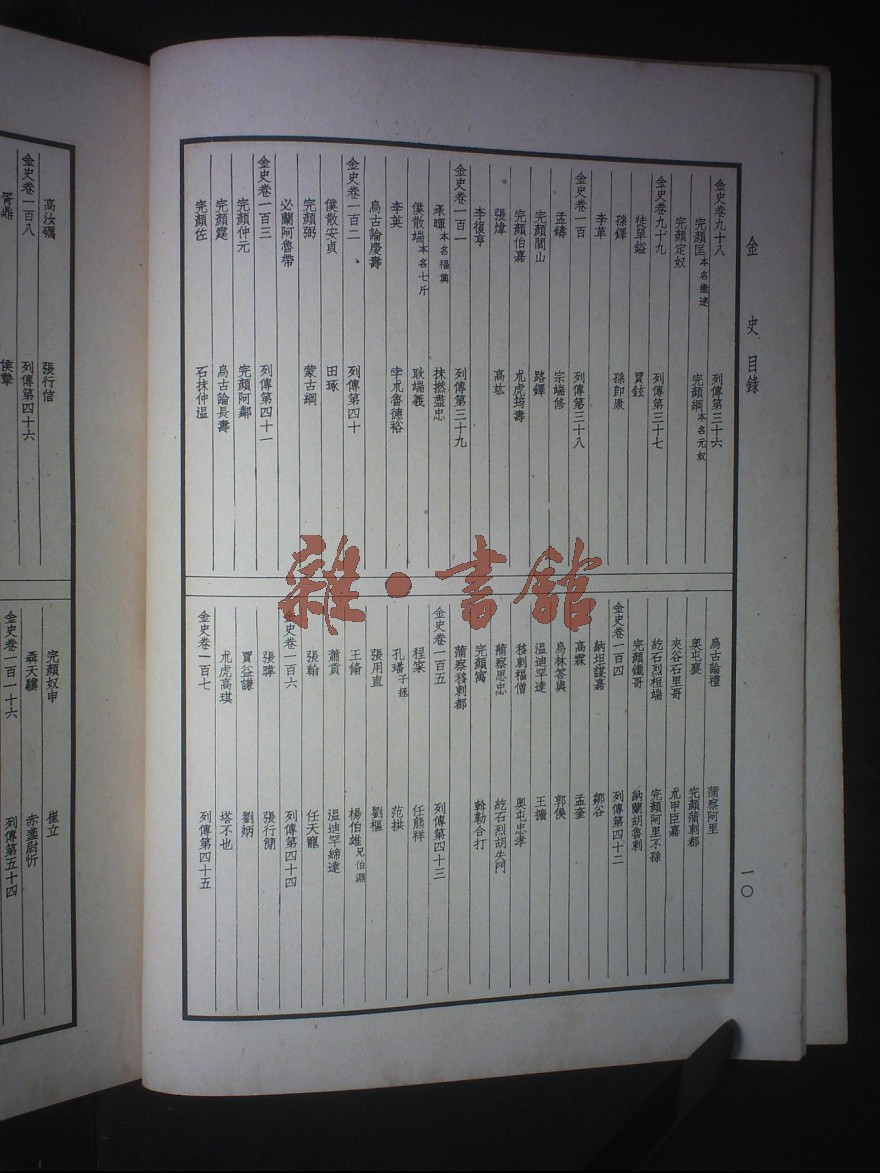 金史目錄
金史卷九十八 列傳第三十六
完顏匡本名撒速 完顏綱本名元奴
完顏定奴
金史卷九十九 列傳第三十七
徒單鎰 賈鉉
孫鐸 孫即康
李革
金史卷一百 列傳第三十八
孟鑄 宗端修
完顏閭山 路鐸
完顏伯嘉 朮虎筠壽
張煒 高竑
李復亨
金史卷一百一 列傳第三十九
承暉本名福興 抹撚盡忠
僕散端本名七斤 耿端義
李英 孛朮魯德裕
烏古論慶壽
金史卷一百二 列傳第四十
僕散安貞 田琢
完顏弼 蒙古綱
必蘭阿魯帶
金史卷一百三 列傳第四十一
完顏仲元 完顏阿鄰
完顏霆 烏古論長壽
完顏佐 石抹仲溫
烏古論禮 蒲察阿里
奧屯襄 完顏蒲剌都
夾谷石里哥 朮甲臣嘉
紇石烈桓端 完顏阿里不孫
完顏鐵哥 納蘭胡魯剌
金史卷一百四 列傳第四十二
納坦謀嘉 鄒谷
高霖 孟奎
烏林答與 郭俁
溫迪罕達 王擴
移剌福僧 奧屯忠孝
蒲察思忠 紇石烈胡失門
完顏寓 斡勒合打
蒲察移剌都
金史卷一百五 列傳第四十三
程寀 任熊祥
孔璠子拯 范拱
張用直 劉樞
王翛 楊伯雄兄伯淵
蕭貢 溫迪罕締達
張翰 任天寵
金史卷一百六 列傳第四十四
張暐 張行簡
賈益謙 劉炳
朮虎高琪 塔不也
金史卷一百七 列傳第四十五
一〇
高汝礪 張行信
金史卷一百八 列傳第四十六
胥鼎 侯摯
完顏奴申 崔立
聶天驥 赤盞尉忻
金史卷一百一十六 列傳第五十四
雜·書館